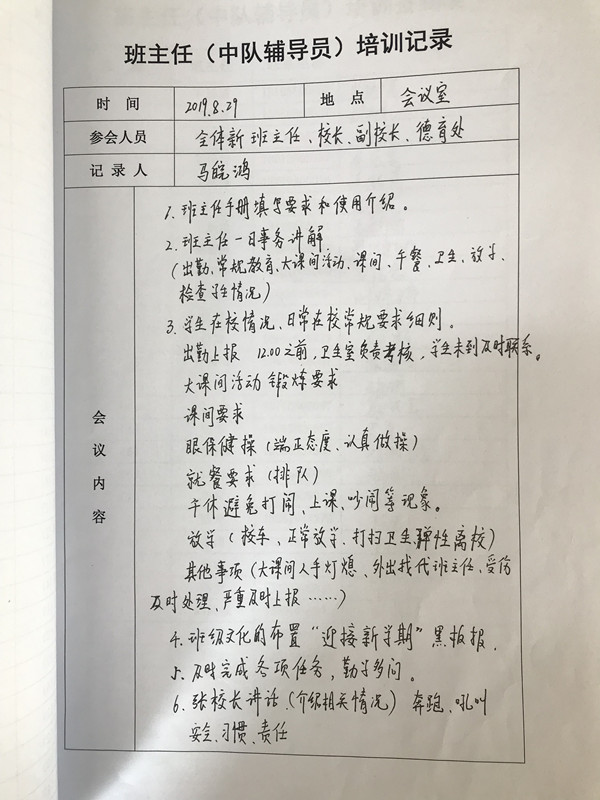 班主任（中队辅导员）培训记录
时 间 2019.8.29 地 点 会议室
参会人员 全体新班主任、校长、副校长、德育处
记 录 人 马皖鸿
会议内容
1. 班主任手册填写要求和使用介绍。
2. 班主任一日事务讲解
（出勤、常规教育、大课间活动、课间、午餐、卫生、放学、
检查学生情况）
3. 学生在校情况、日常在校常规要求细则。
出勤上报 12.00之前，卫生室负责考核，学生未到及时联系。
大课间活动 锻炼要求
课间要求
眼保健操（端正态度、认真做操）
就餐要求（排队）
午休避免打闹、上课、吵闹等现象。
放学（校车、正常放学、打扫卫生、弹性离校）
其他事项（大课间人手灯熄、外出找代班主任、受伤
及时处理、严重及时上报……）
4. 班级文化的布置“迎接新学期”黑板报.
5. 及时完成各项任务，勤学多问。
6. 张校长讲话.（介绍相关情况） 奔跑、吼叫
安全、习惯、责任